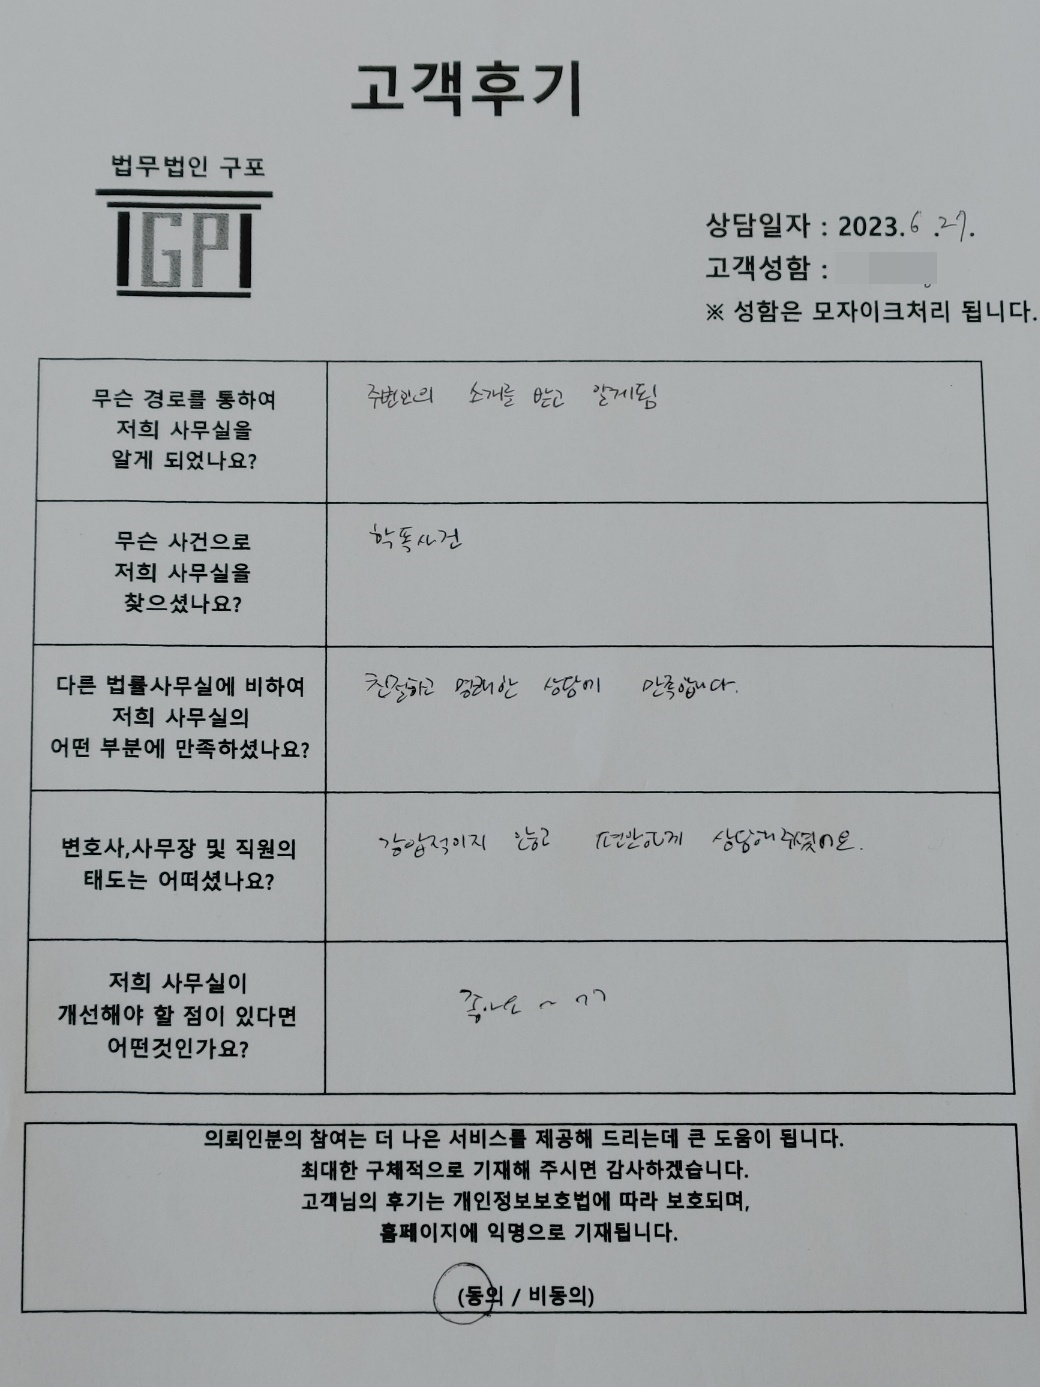 고객후기
법무법인 구포
GP
상담일자 : 2023. 6 .27.
고객성함 :
※ 성함은 모자이크처리 됩니다.
무슨 경로를 통하여
저희 사무실을
알게 되었나요?
주변인의 소개를 받고 알게됨
무슨 사건으로
저희 사무실을
찾으셨나요?
학폭사건
다른 법률사무실에 비하여
저희 사무실의
어떤 부분에 만족하셨나요?
친절하고 명쾌한 상담에 만족합니다.
변호사,사무장 및 직원의
태도는 어떠셨나요?
강압적이지 않고 편안하게 상담해주셨어요.
저희 사무실이
개선해야 할 점이 있다면
어떤것인가요?
좋아요~ ㄱㄱ
의뢰인분의 참여는 더 나은 서비스를 제공해 드리는데 큰 도움이 됩니다.
최대한 구체적으로 기재해 주시면 감사하겠습니다.
고객님의 후기는 개인정보보호법에 따라 보호되며,
홈페이지에 익명으로 기재됩니다.
(동의 / 비동의)